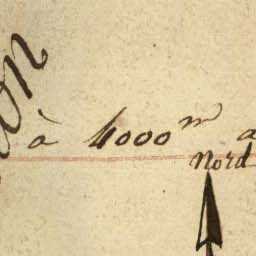 on
à 4000m a
Nord